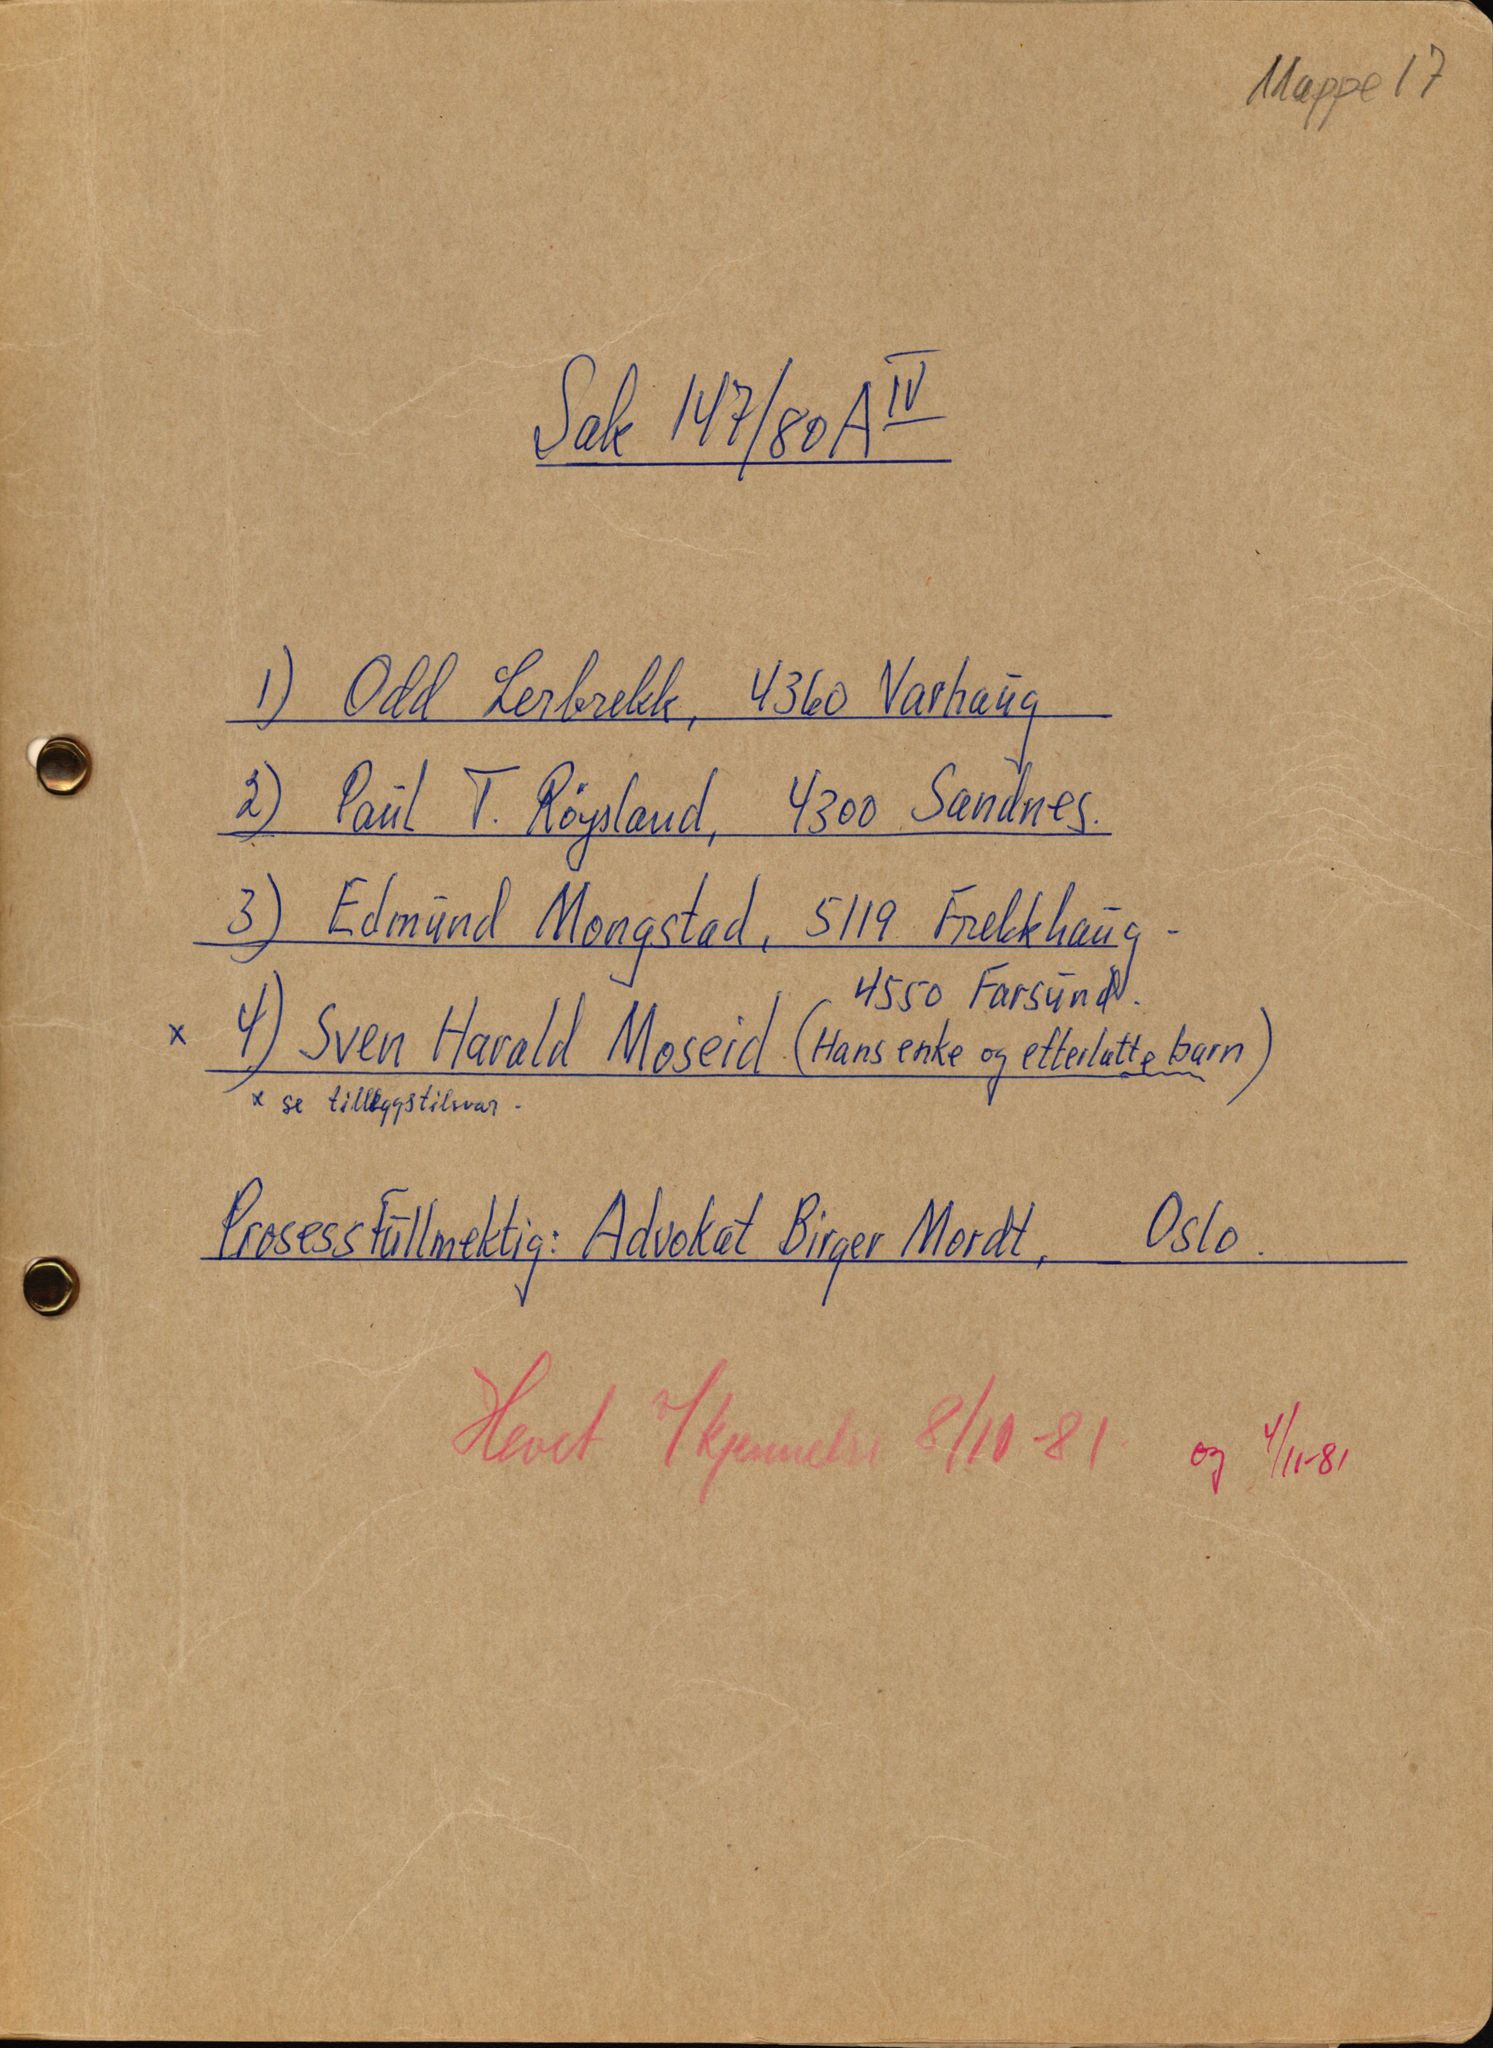 Mappe 17
Sak 147/80 A IV
1) Odd Lerbrekk, 4360 Varhaug
2) Paul T. Röysland, 4300 Sandnes.
3) Edmund Mongstad, 5119 Frekkhaug -
4550 Farsund.
x 4) Sven Harald Moseid (Hans enke og etterlatte barn)
x se tilleggstilsvar -
Prosessfullmektig: Advokat Birger Mordt, Oslo.
Hevet v/kjennelse 8/10-81 og 4/11-81